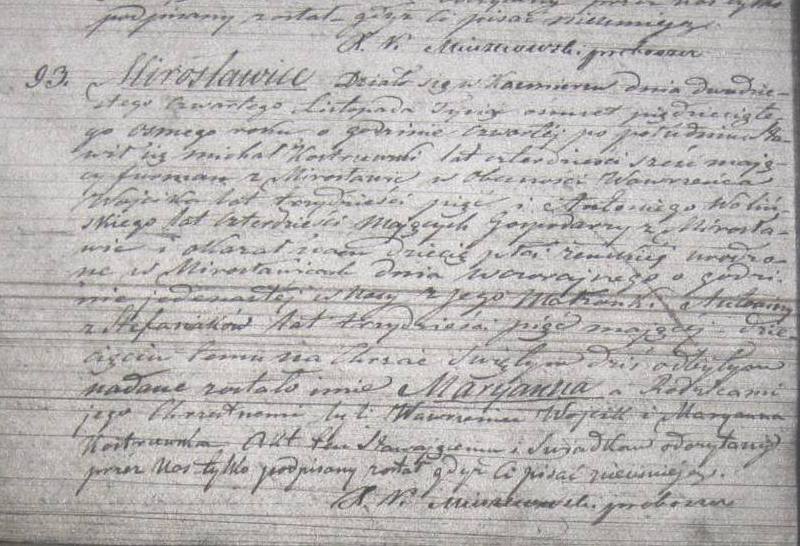 podpisany został gdyż ci pisać nieumieją.
X. N. proboszcz
93. Mirosławice Działo się w Kazimierzu dnia dwudzie-
stego czwartego Listopada Tysiąc osmset pięćdziesiąte-
go osmego roku o godzinie czwartej po południu Sta-
wił się Michał Kostrzewski lat czterdzieści sześć mają-
cy furman z Mirosławic w obecności Wawrzeńca
Wojcika lat trzydzieści pięć i Antoniego Woliń-
skiego lat czterdzieści mających Gospodarzy z Mirosła-
wic i okazał nam dziecię płci żeńskiej urodzo-
ne w Mirosławicach dnia wczorajszego o godzi-
nie jedenastej w nocy z jego Małżonki Antoniny
z Stefaniaków lat trzydzieści pięć mającej dzie-
cięciu temu na Chrzcie Świętym dziś odbytym
nadane zostało imie Maryanna a Rodzicami
jego Chrzestnemi byli Wawrzeniec Wojcik i Maryanna
Kostrzewska Akt ten Stawającemu i Świadkom odczytany
przez Nas tylko podpisany został gdyż ci pisać nieumieją.
X. N. proboszcz